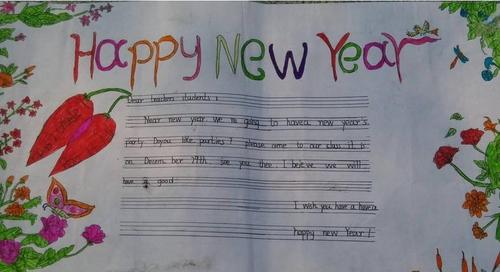 Happy New Year
Dear teachers students:
Near new year we are going to havea new year's
party Doyou like parties? please come to our class it is
on Decem ber 29th. see you there I believe we will
have a good
I wish you have a have a
happy new Year!